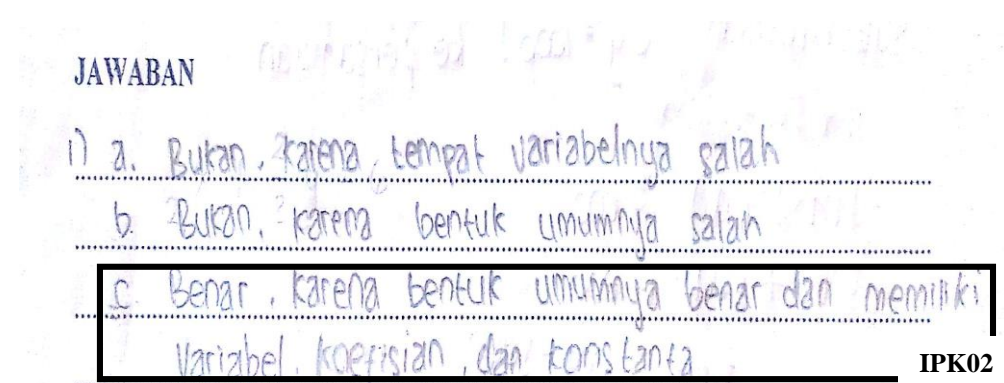 JAWABAN
1) a. Bukan, karena tempat variabelnya salah
b. Bukan, karena bentuk umumnya salah
c. Benar, karena bentuk umumnya benar dan memiliki
Variabel, koefisian, dan konstanta.
IPK02